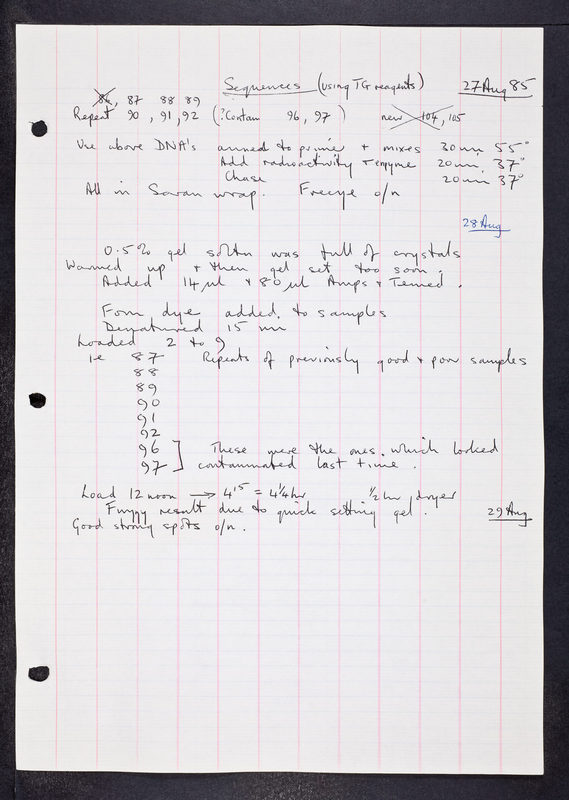 Sequences (using TG reagents) 27 Aug 85
86, 87 88 89
Repeat 90, 91, 92 (?Contam 96, 97) new 104, 105
Use above DNA's anned to primer + mixes 30 min 55°
Add radioactivity + enzyme 20 min 37°
Chase 20 min 37°
All in Saran wrap. Freeze o/n
28 Aug
0.5% gel soltn was full of crystals
Warmed up + then gel set too soon.
Added 14 µl + 80 µl Amps + Temed.
Form dye added to samples
Denatured 15 min
Loaded 2 to 9
ie 87 Repeats of previously good + poor samples
88
89
90
91
92
96 ] These were the ones which looked
97 ] contaminated last time.
Load 12 noon → 4¹⁵ = 4¼ hr ½ hr dryer
Fuzzy result due to quick setting gel.
29 Aug
Good strong spots o/n.